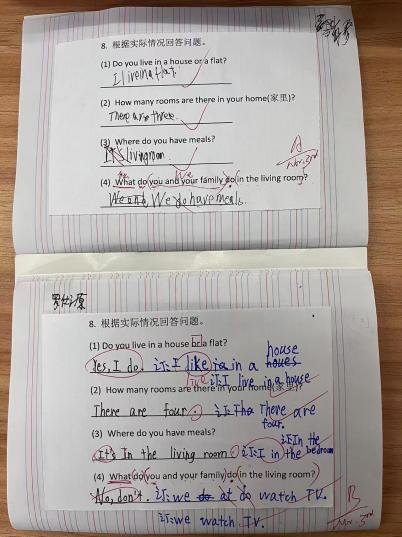 8. 根据实际情况回答问题。
(1) Do you live in a house or a flat?
I live in a flat.
(2) How many rooms are there in your home(家里)?
There are three.
(3) Where do you have meals?
It's living room.
A
(4) What do you and your family do in the living room?
We
We do have meals.
8. 根据实际情况回答问题。
(1) Do you live in a house or a flat?
house
Yes, I do. 订: I like is in a houes
live 订: I live in a house
(2) How many rooms are there in your home(家里)?
There are four. 订: The There are
four.
(3) Where do you have meals?
订: In the
It's In the living room. 订: I in the bedroom
(4) What do you and your family do in the living room?
No, don't. 订: we do at do watch TV.
B
订: we watch TV.